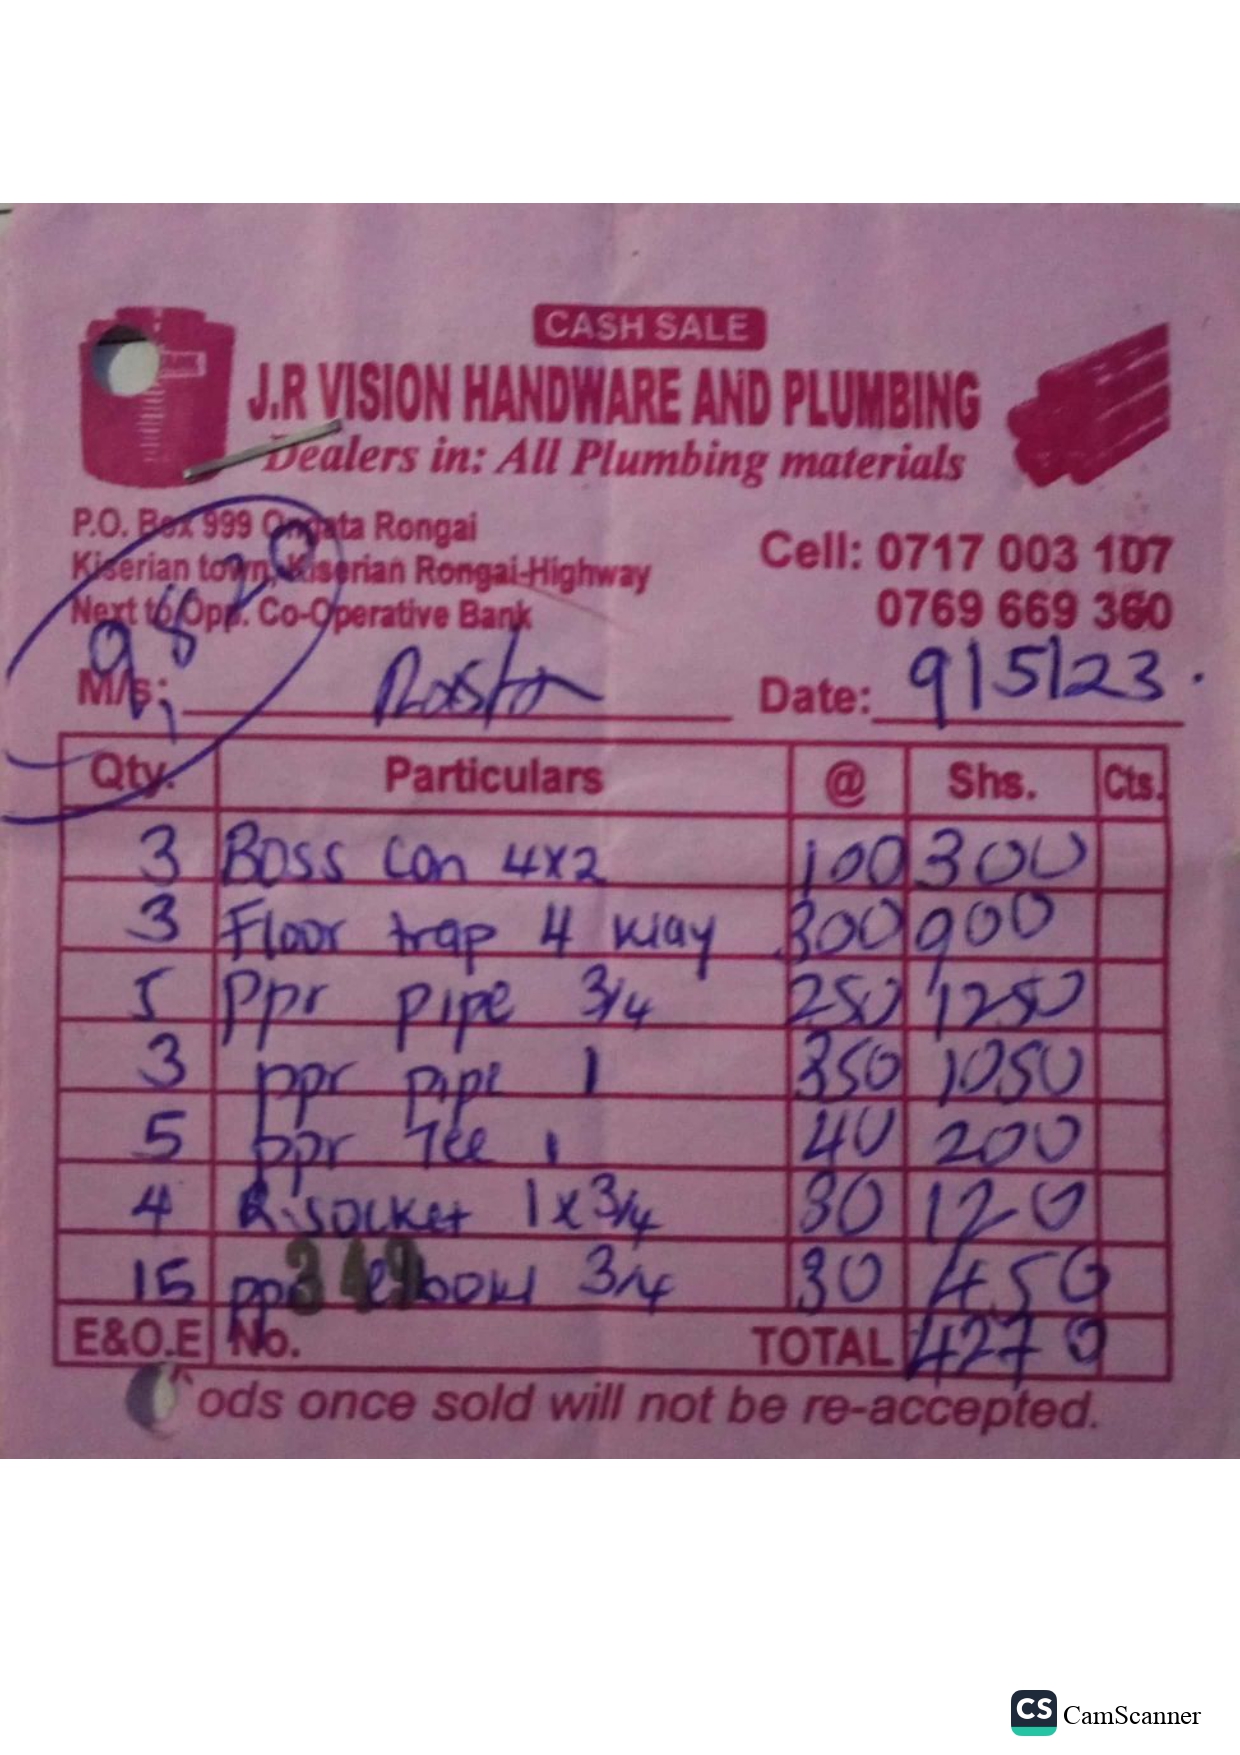 CASH SALE
J.R VISION HANDWARE AND PLUMBING
Dealers in: All Plumbing materials
P.O. Box 999 Ongata Rongai
Kiserian town, Kiserian Rongai-Highway
Next to/Opp. Co-Operative Bank
Cell: 0717 003 107
0769 669 360
M/s: Date: 9/5/23.
Qty. Particulars @ Shs. Cts.
3 Boss Con 4x2 100 300
3 Floor trap 4 way 300 900
5 ppr pipe 3/4 250 1250
3 ppr pipe 1 350 1050
5 ppr Tee 1 40 200
4 R.socket 1x3/4 30 120
15 ppr elbow 3/4 30 450
E&O.E No. 349 TOTAL 4270
ods once sold will not be re-accepted.
CS CamScanner